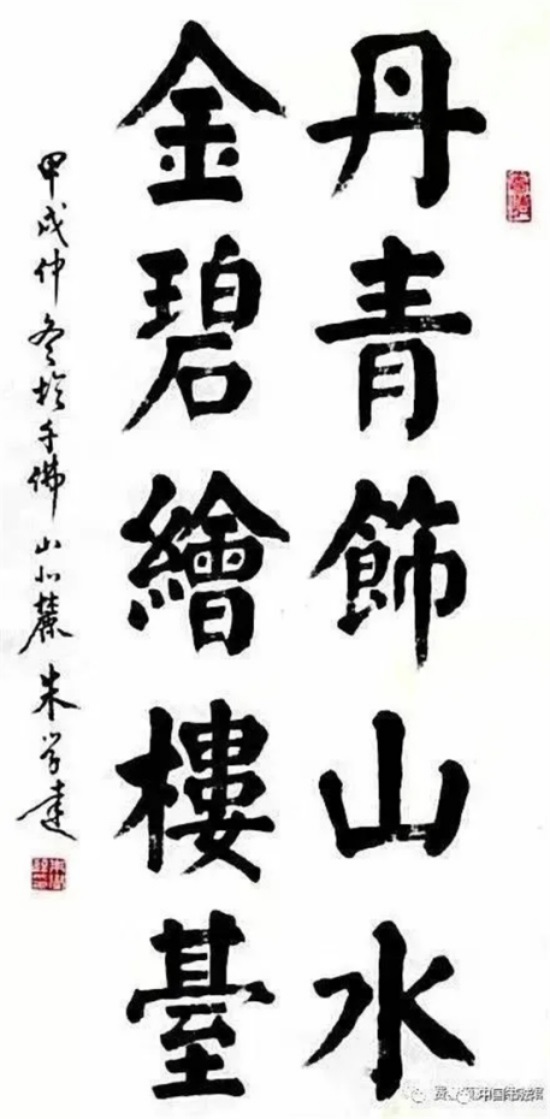 丹青飾山水
金碧繪樓臺
甲戌仲冬於千佛山北麓朱学達
中国书法馆